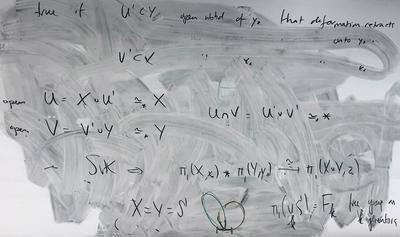 true if U' ⊂ Y open nbhd of y₀ that deformation retracts
onto y₀.
V' ⊂ X " " x₀ " x₀
open U = X ∪ U' ≃* X
U ∩ V = U' ∪ V' ≃ *
open V = V' ∪ Y ≃* Y
SvK ⇒ π₁(X,x₀) * π₁(Y,y₀) ≅→ π₁(X∨Y,z)
X = Y = S¹
π₁(∨ S¹) = F_k free group on
k k generators